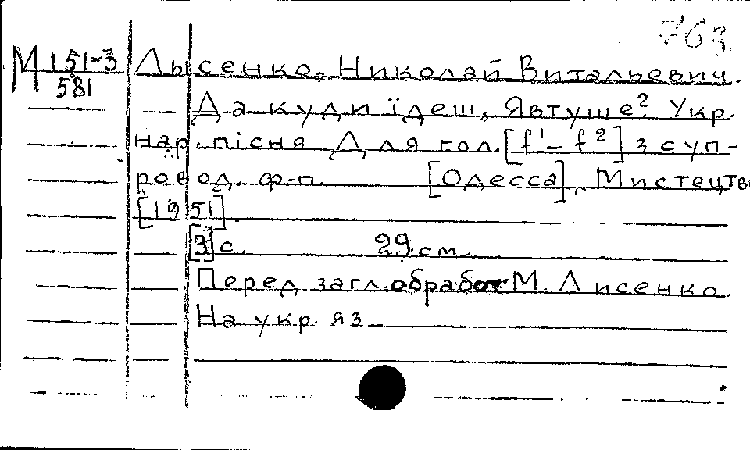 763
М 151-3 Лысенко, Николай Витальевич.
581
Да куди їдеш, Явтуше? Укр.
нар. пісня Для гол. [f¹ – f²] з суп-
ровод. ф-п. [Одесса], Мистецтв
[1951].
[3] с. 29 см.
Перед загл. обработ М. Лисенко
На укр. яз.